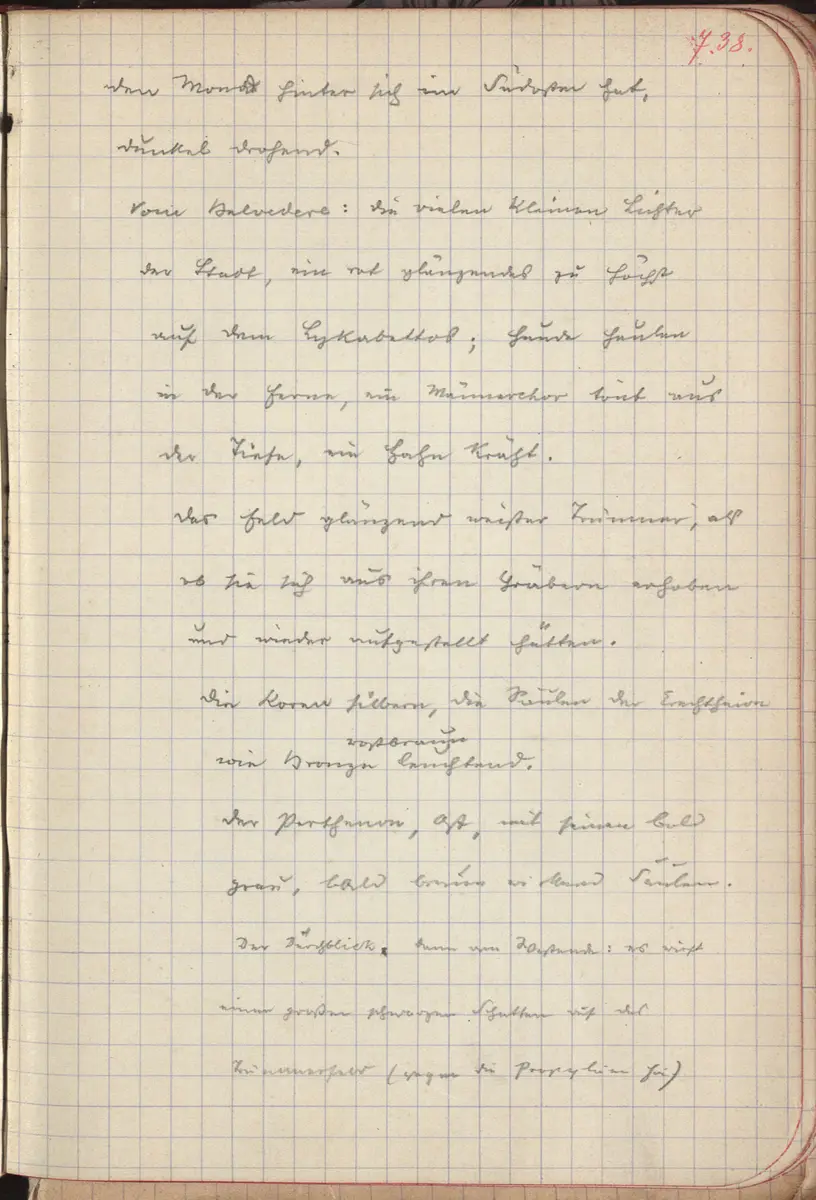 7.38.
den Mond hinter sich im Südosten hat,
dunkel drohend.
Vom Belvedere: die vielen kleinen Lichter
der Stadt, ein rot glänzendes zu höchst
auf dem Lykabettos; Hunde heulen
in der Ferne, ein Männerchor tönt aus
der Tiefe, ein Hahn kräht.
Das Feld glänzend weißer Trümmer, als
ob sie sich aus ihren Gräbern erhoben
und wieder aufgestellt hätten.
Die Koren silbern, die Säulen der Erechtheion
rostbraun
wie Bronze leuchtend.
Der Parthenon, Ost, mit seinen bald
grau, bald braun Säulen.
Der Durchblick. dann am Westende: es wirft
einen großen schwarzen Schatten auf das
Trümmerfeld (gegen die Propyläen hin)